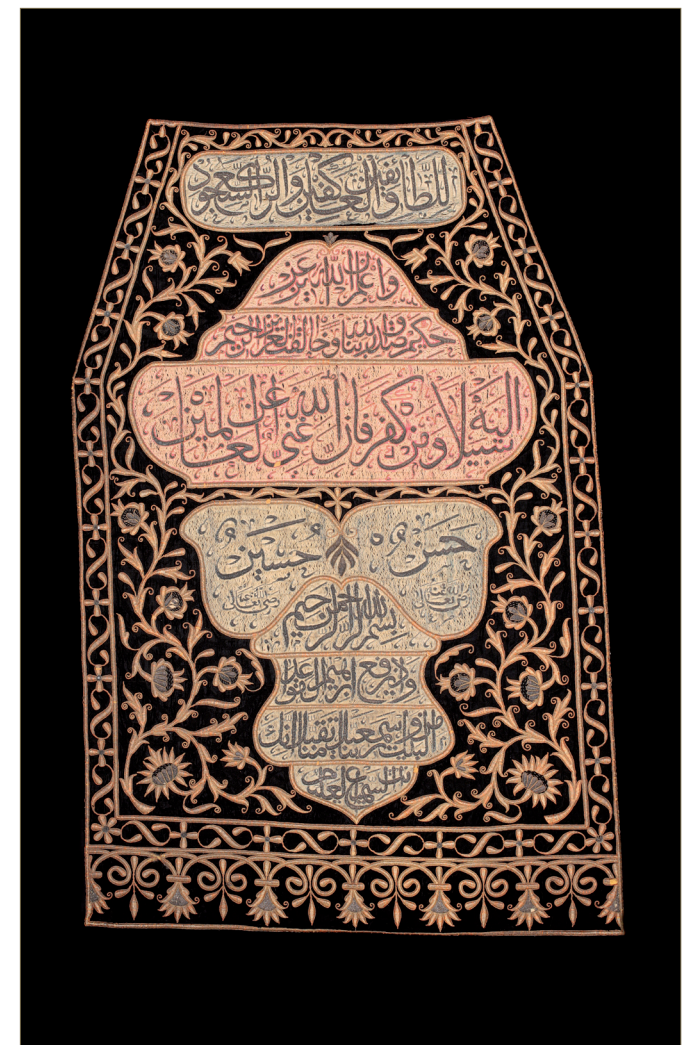 للطائفين والعاكفين والركع السجود
واعلم ان الله عزيز
حكيم صدق الله ربنا وخالقنا العزيز الرحيم
اليه سبيلا ومن كفر فان الله غني عن العالمين
حسن حسين
رضي الله تعالى عنه رضي الله تعالى عنه
بسم الله الرحمن الرحيم
واذ يرفع ابرهيم القواعد
من البيت واسمعيل ربنا تقبل منا انك
انت السميع العليم